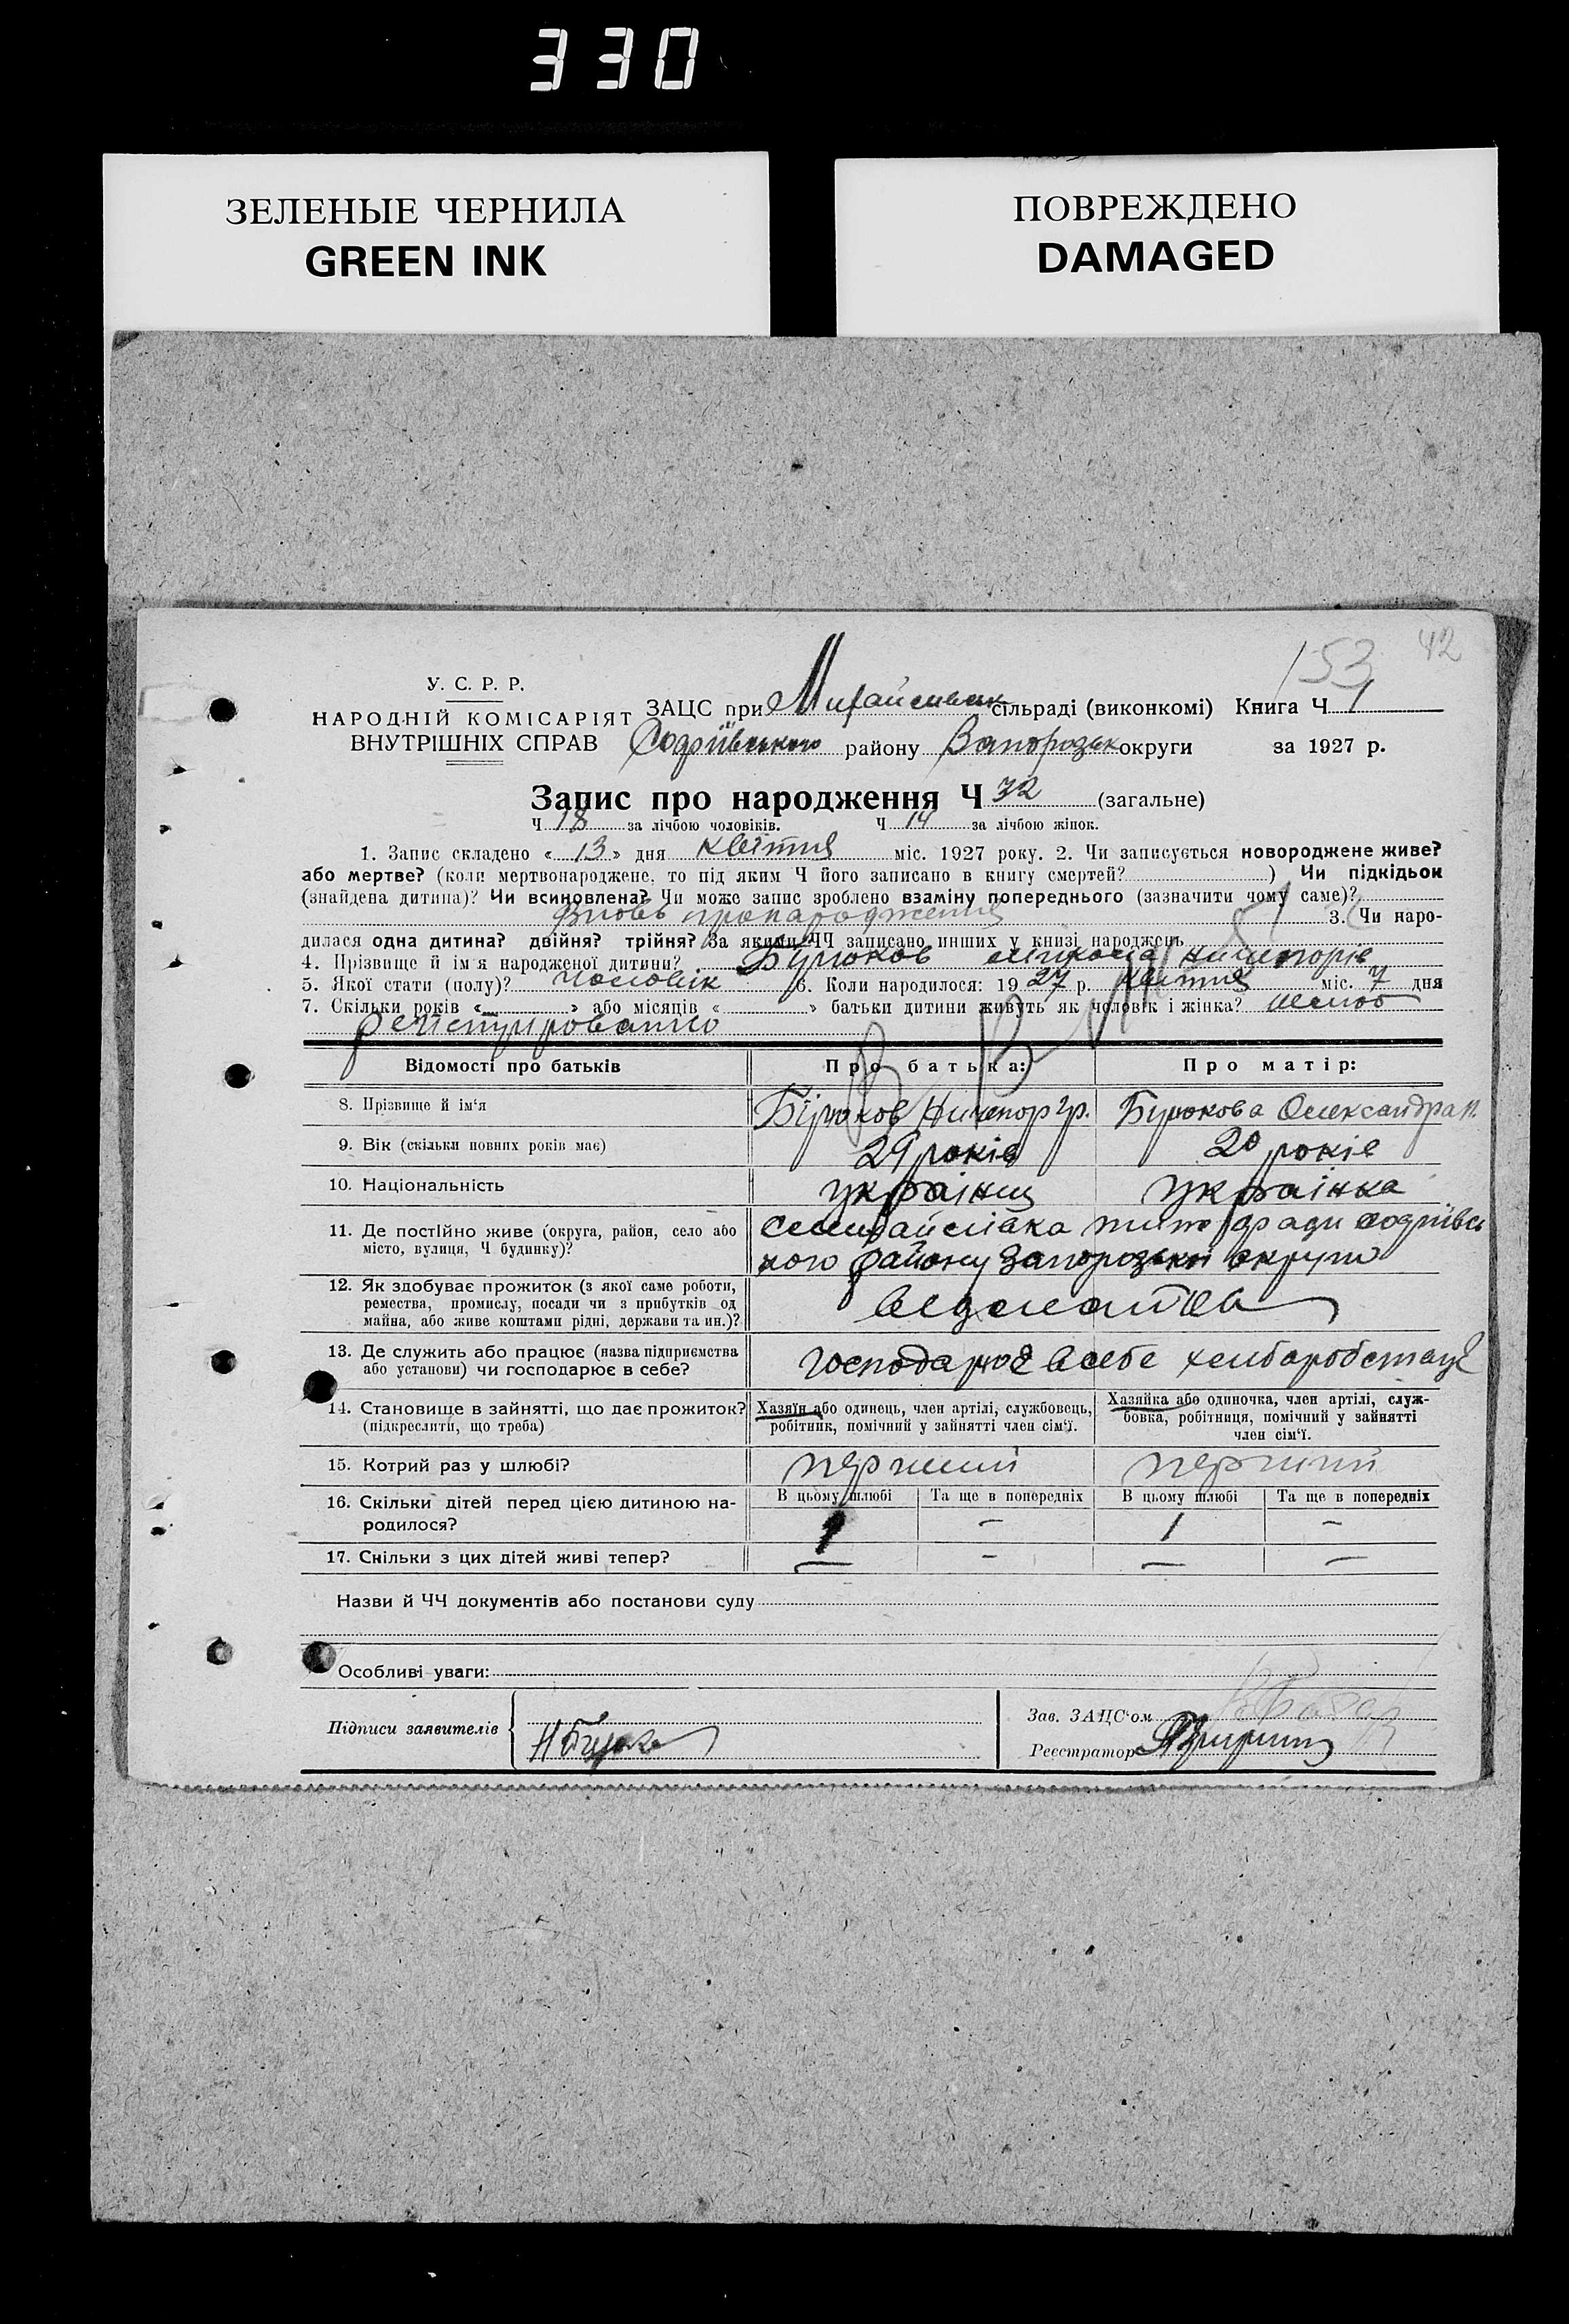 330
ЗЕЛЕНЫЕ ЧЕРНИЛА
GREEN INK
ПОВРЕЖДЕНО
DAMAGED
153 42
У. С. Р. Р.
НАРОДНІЙ КОМІСАРІЯТ
ВНУТРІШНІХ СПРАВ
ЗАЦС при сільраді (виконкомі) Книга Ч 1
району Запорозьк округи за 1927 р.
Запис про народження Ч 32 (загальне)
Ч 18 за лічбою чоловіків. Ч 14 за лічбою жінок.
1. Запис складено « 13 » дня квітня міс. 1927 року. 2. Чи записується новороджене живе?
або мертве? (коли мертвонароджене, то під яким Ч його записано в книгу смертей? ) Чи підкідьок
(знайдена дитина)? Чи всиновлена? Чи може запис зроблено взаміну попереднього (зазначити чому саме)?
3. Чи наро-
дилася одна дитина? двійня? трійня? За якими ЧЧ записано инших у книзі народжень
4. Прізвище й ім'я народженої дитини? Бірюков Микола
5. Якої стати (полу)? чоловік 6. Коли народилося: 19 27 р. квітня міс. 7 дня
7. Скільки років « » або місяців « » батьки дитини живуть як чоловік і жінка? шлюб
Відомості про батьків
Про батька:
Про матір:
8. Прізвище й ім'я
Бірюков Ничепор Гр.
Бірюкова Олександра
9. Вік (скільки повних років має)
29 років
20 років
10. Національність
українц
українка
11. Де постійно живе (округа, район, село або
місто, вулиця, Ч будинку)?
кого району Запорозької округи
12. Як здобуває прожиток (з якої саме роботи,
ремества, промислу, посади чи з прибутків од
майна, або живе коштами рідні, держави та ин.)?
13. Де служить або працює (назва підприємства
або установи) чи господарює в себе?
господарює в себе
14. Становище в зайнятті, що дає прожиток?
(підкреслити, що треба)
Хазяїн або одинець, член артілі, службовець,
робітник, помічний у зайнятті член сім'ї.
Хазяйка або одиночка, член артілі, служ-
бовка, робітниця, помічний у зайнятті
член сім'ї.
15. Котрий раз у шлюбі?
перший
перший
16. Скільки дітей перед цією дитиною на-
родилося?
В цьому шлюбі Та ще в попередніх В цьому шлюбі Та ще в попередніх
1 – 1 –
17. Скільки з цих дітей живі тепер?
– – – –
Назви й ЧЧ документів або постанови суду
Особливі уваги:
Підписи заявителів
Зав. ЗАЦС'ом
Реєстратор